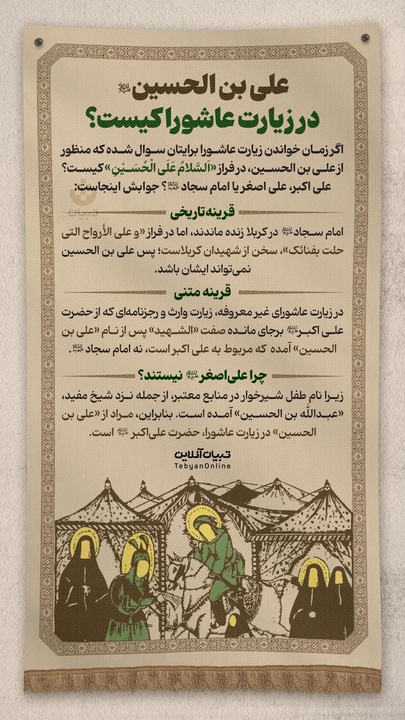 علی بن الحسین
در زیارت عاشورا کیست؟
اگر زمان خواندن زیارت عاشورا برایتان سوال شده که منظور
از علی بن الحسین، در فراز «اَلسَّلامُ عَلَی الْحُسَیْنِ» کیست؟
علی اکبر، علی اصغر یا امام سجاد؟ جوابش اینجاست:
تبیان
قرینه تاریخی
امام سجاد در کربلا زنده ماندند، اما در فراز «و علی الأرواح التی
حلت بفنائک»، سخن از شهیدان کربلاست؛ پس علی بن الحسین
نمی‌تواند ایشان باشد.
قرینه متنی
در زیارت عاشورای غیر معروفه، زیارت وارث و رجزنامه‌ای که از حضرت
علی اکبر برجای مانده صفت «الشهید» پس از نام «علی بن
الحسین» آمده که مربوط به علی اکبر است، نه امام سجاد.
چرا علی‌اصغر نیستند؟
زیرا نام طفل شیرخوار در منابع معتبر، از جمله نزد شیخ مفید،
«عبدالله بن الحسین» آمده است. بنابراین، مراد از «علی بن
الحسین» در زیارت عاشورا، حضرت علی‌اکبر است.
تبیان آنلاین
TebyanOnline